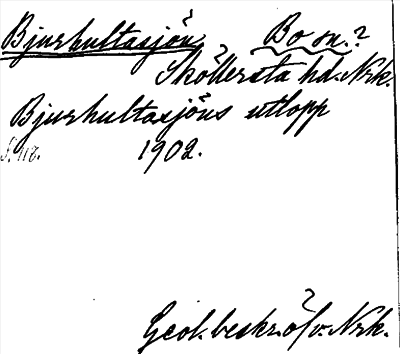 Bjurhultasjön Bo sn.?
Sköllersta hd. Nrk.
Bjurhultasjöns utlopp
1902.
Geol. beskr. öfv. Nrk.